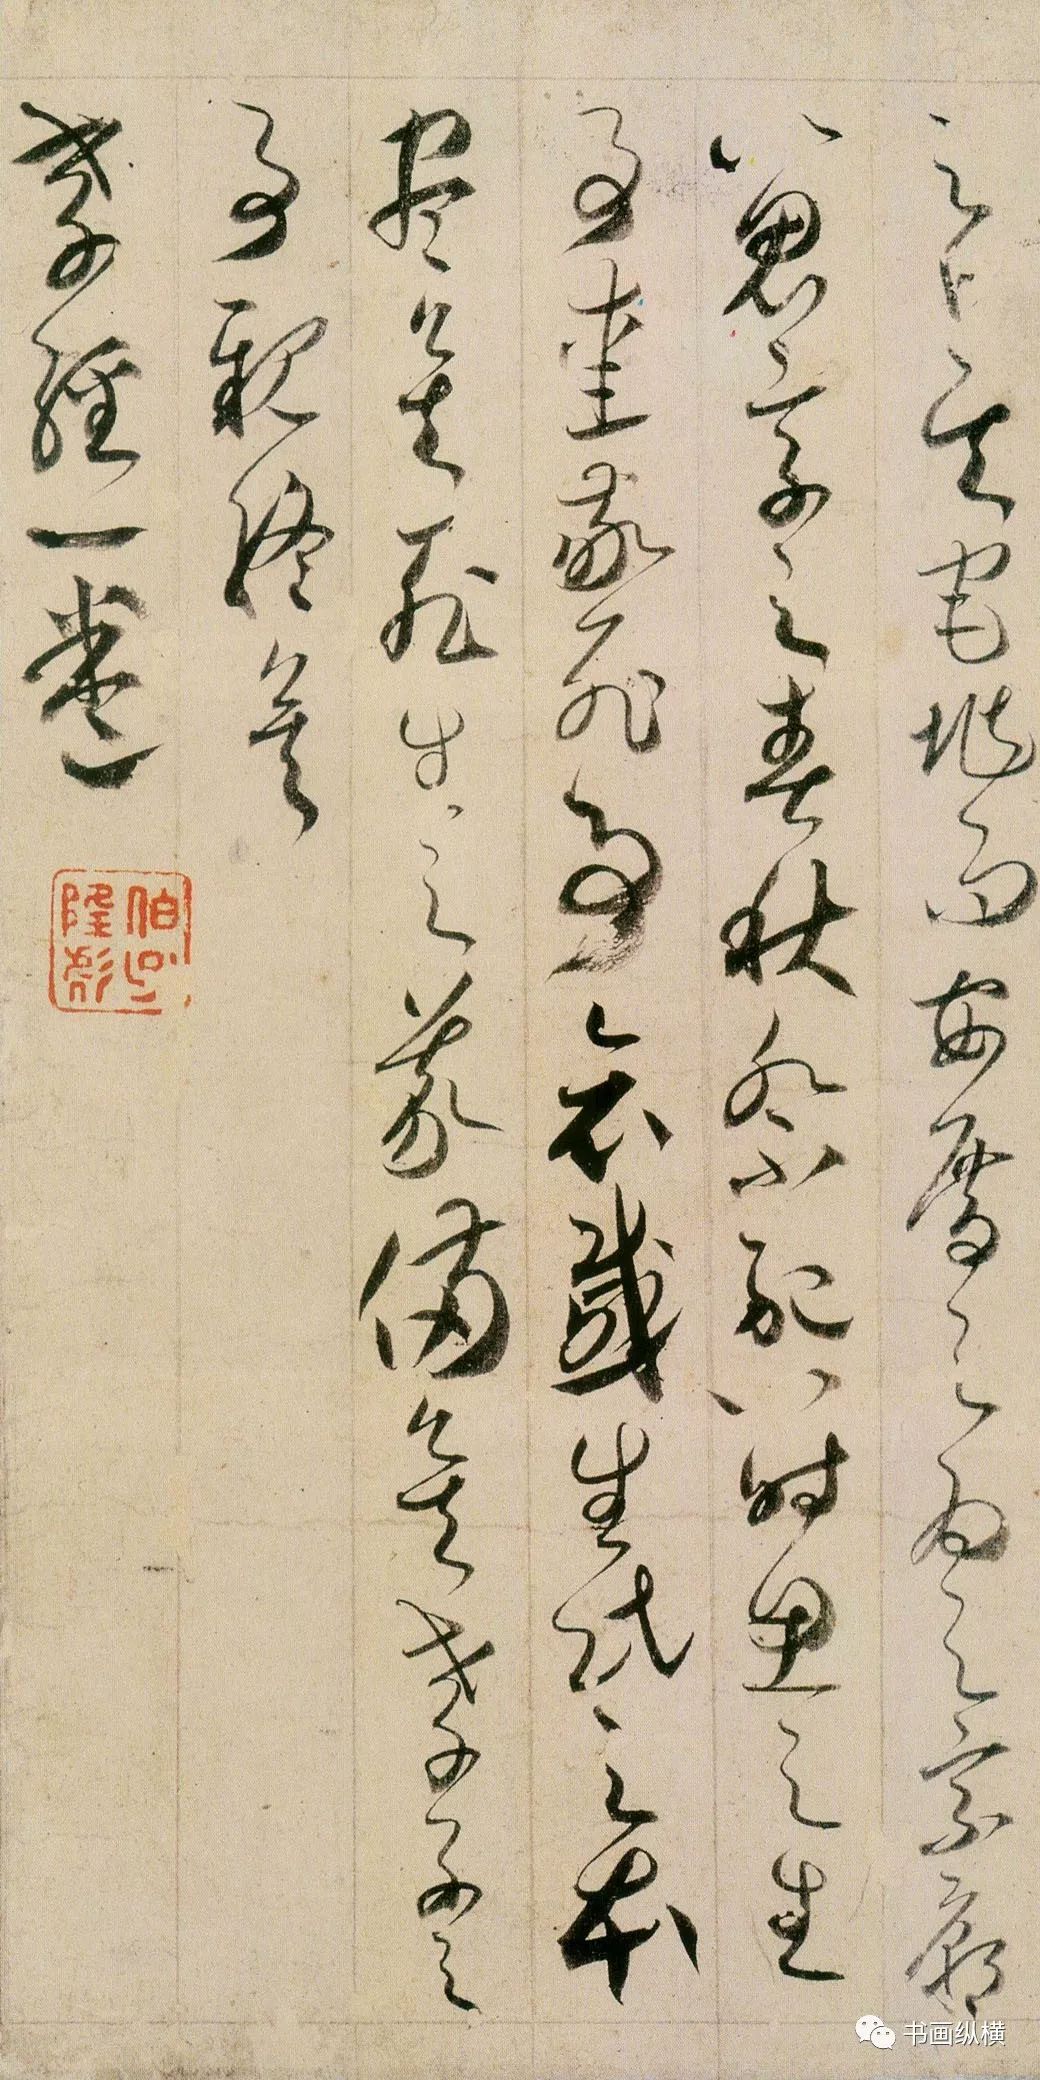 之卜其宅地而安厝之為之宗廟
以鬼享之春秋祭祀以時思之生
事愛敬死事哀慼生民之本
盡矣死生之義備矣孝子之
事親終矣
孝經一卷
书画纵横